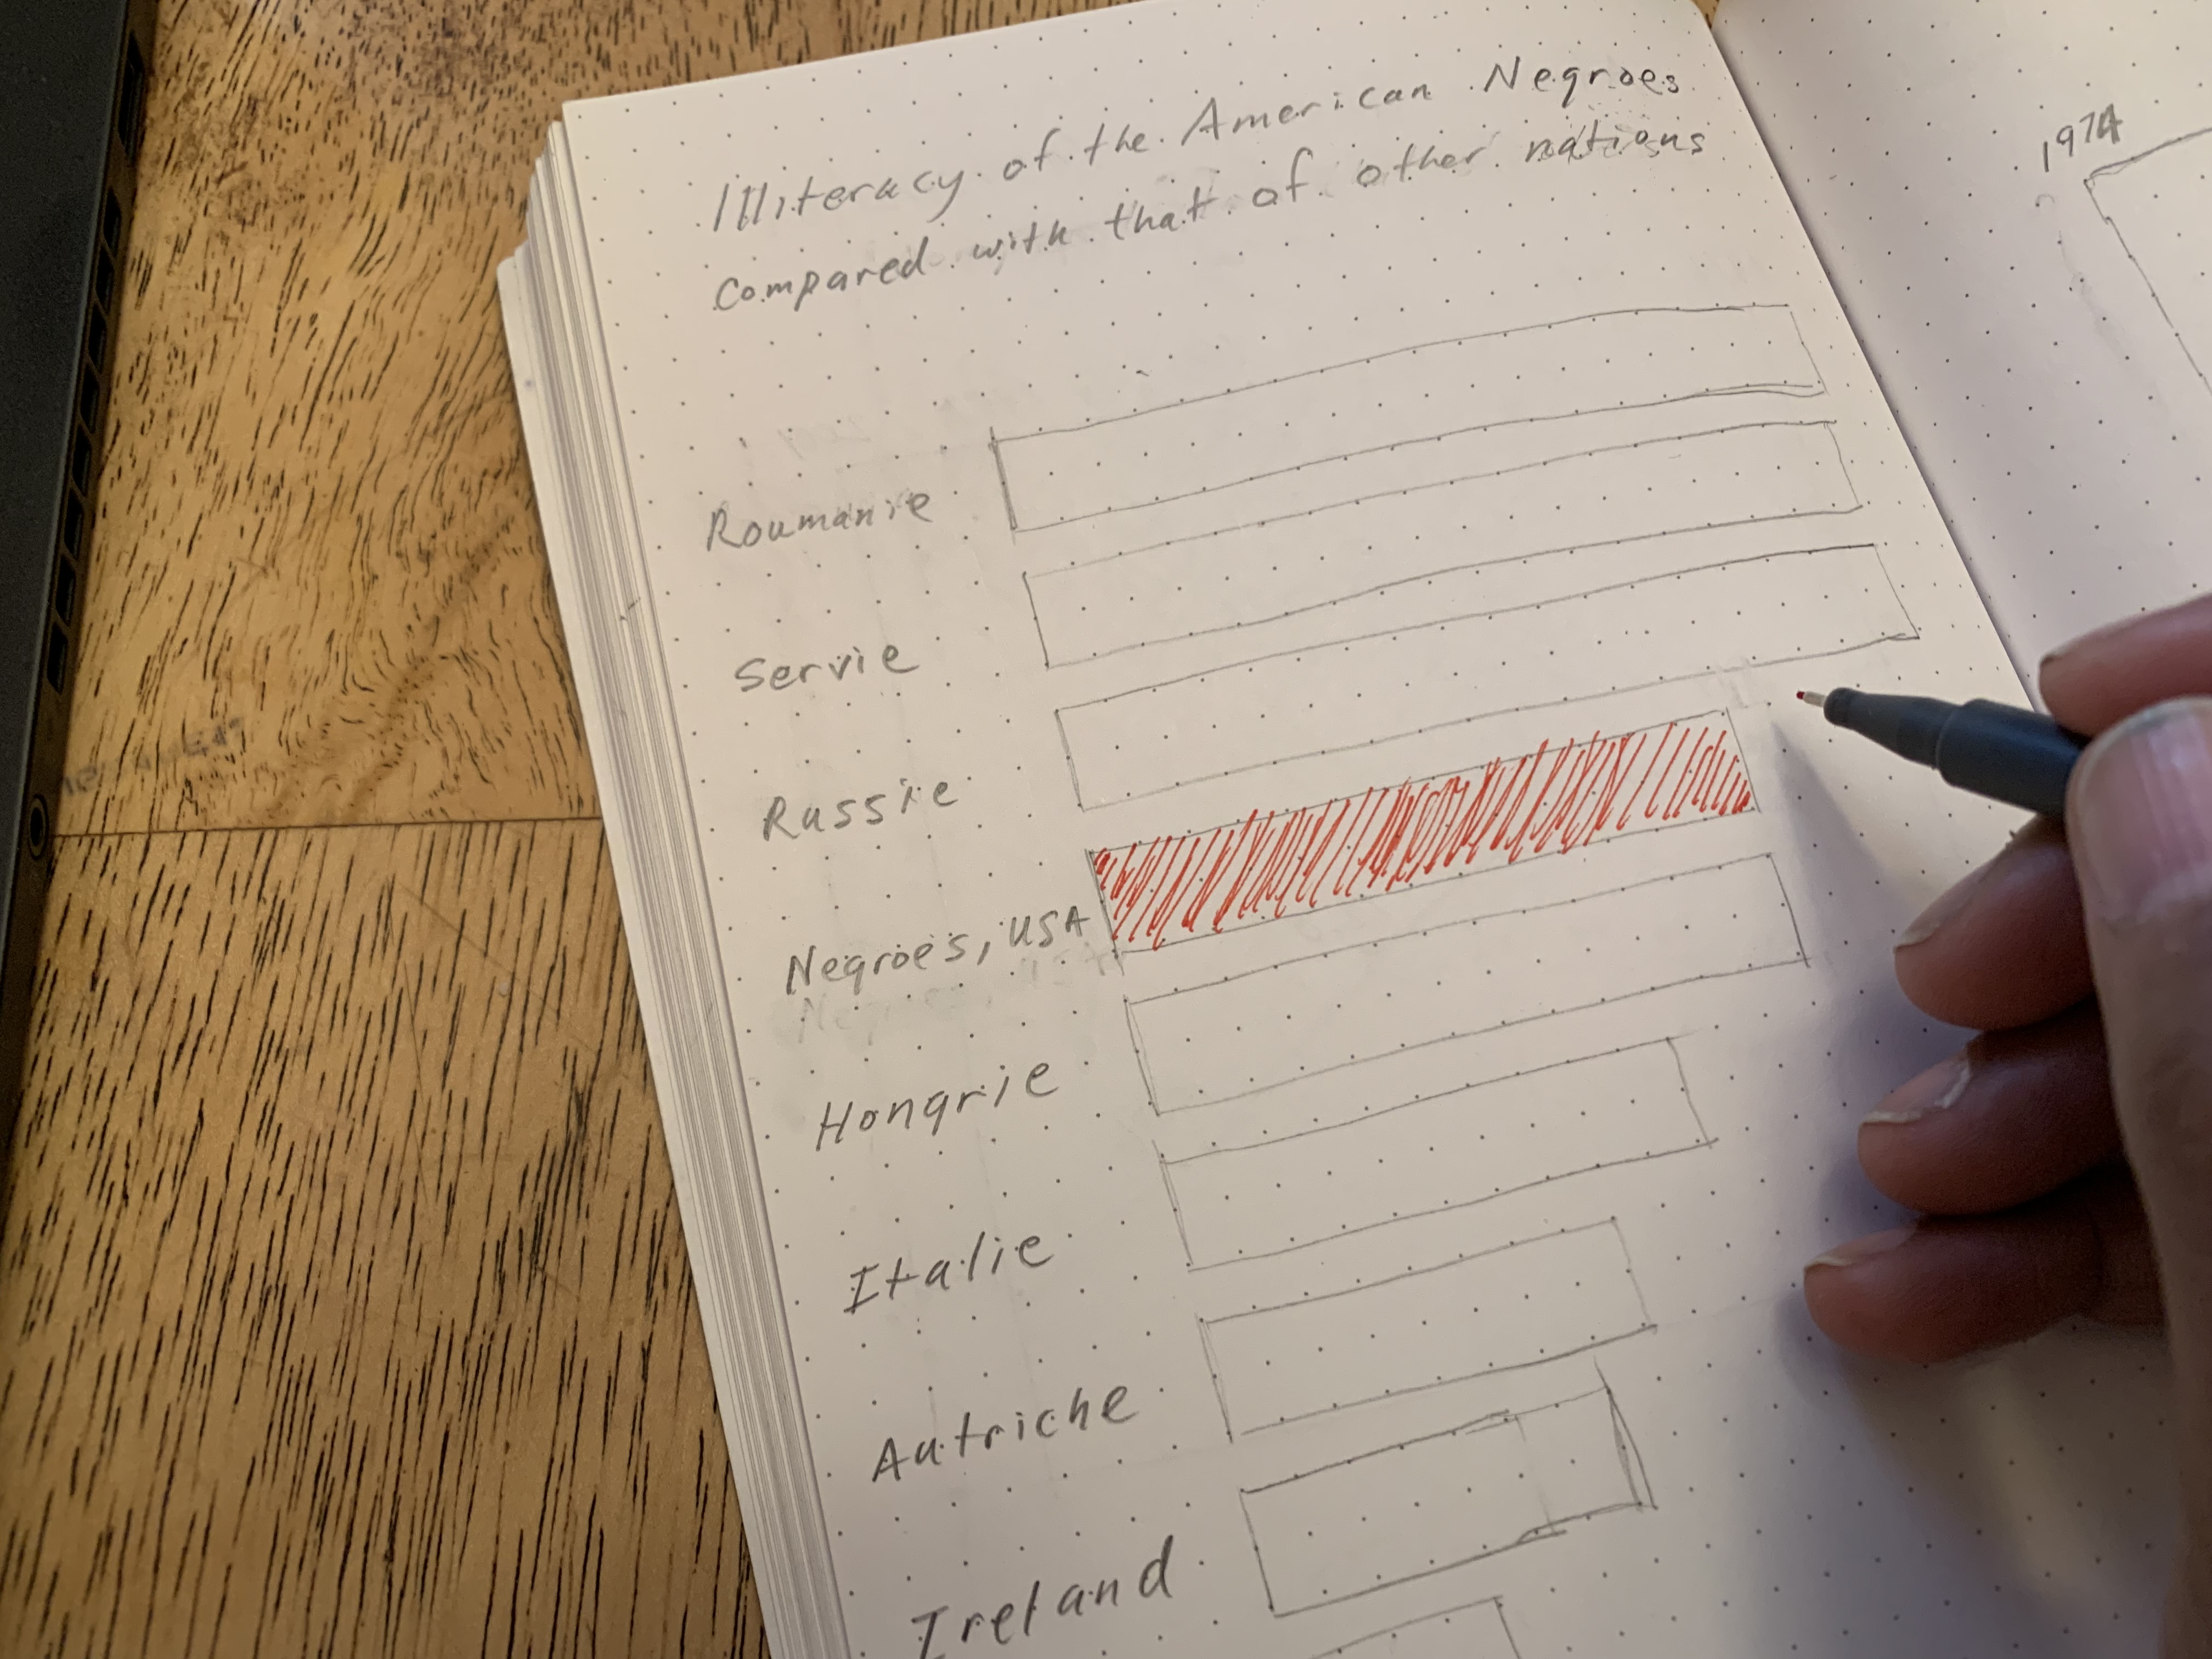 Illiteracy of the American Negroes
compared with that of other nations
1974
Roumanie
Servie
Russie
Negroes, USA
Hongrie
Italie
Autriche
Ireland